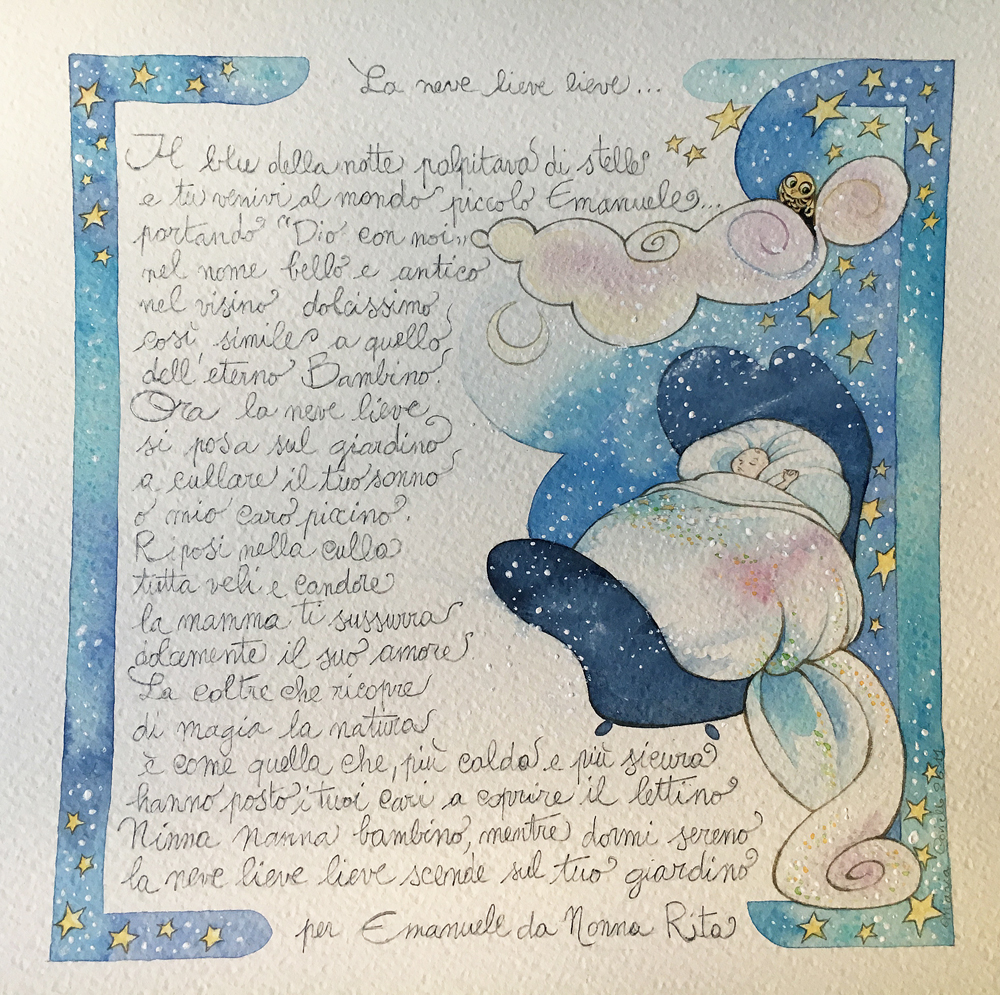 La neve lieve lieve...
Il blu della notte palpitava di stelle
e tu venivi al mondo piccolo Emanuele...
portando "Dio con noi"
nel nome bello e antico
nel visino dolcissimo
così simile a quello
dell'eterno Bambino.
Ora la neve lieve
si posa sul giardino
a cullare il tuo sonno
o mio caro piccino.
Riposi nella culla
tutta veli e candore
la mamma ti sussurra
dolcemente il suo amore.
La coltre che ricopre
di magia la natura
è come quella che, più calda e più sicura
hanno posto i tuoi cari a coprire il lettino
Ninna nanna bambino, mentre dormi sereno
la neve lieve lieve scende sul tuo giardino
per Emanuele da Nonna Rita